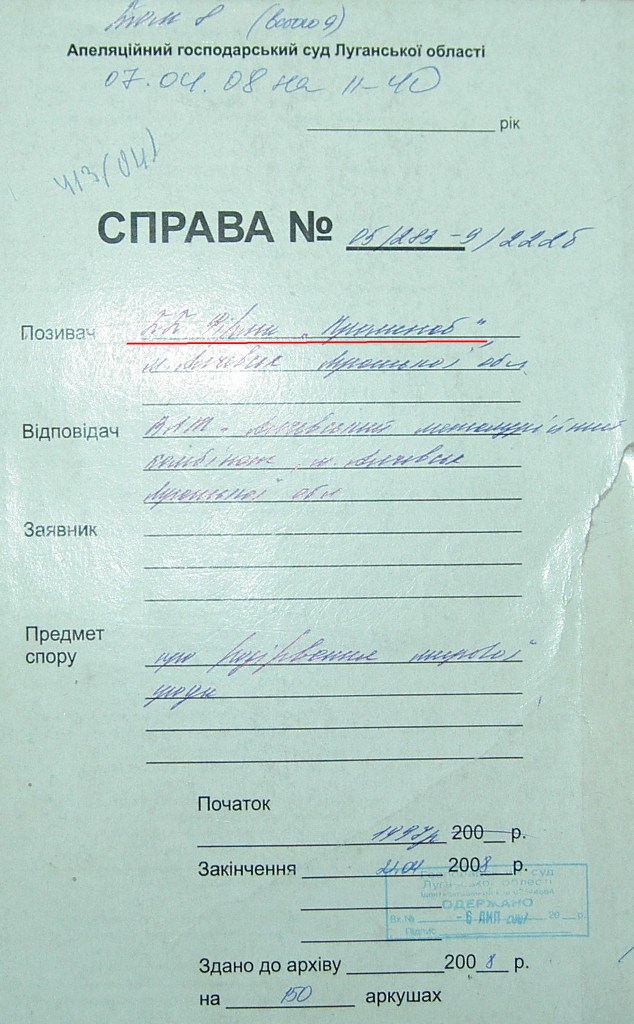 Том 8 (всього 9)
Апеляційний господарський суд Луганської області
07.04.08 на 11-40
рік
413(04)
СПРАВА № 05/283-9/2226
Позивач фірми „
м. Алчевськ Луганської обл
Відповідач ВАТ Алчевський металургійний
комбінат, м. Алчевськ
Луганської обл
Заявник
Предмет
спору про розірвання мирової
угоди
Початок
1997р 200 р.
Закінчення 21.04 2008 р.
суд
Луганської області
ОДЕРЖАНО
Вх.№ - 6 ЛИП 20 р.
Підпис
Здано до архіву 2008 р.
на 150 аркушах